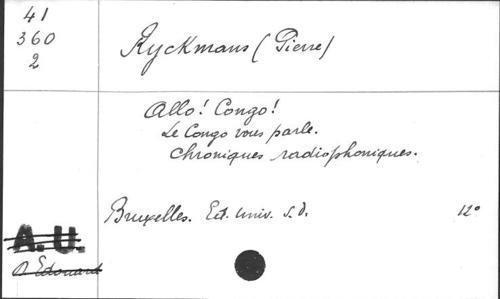 41
360
2
Ryckmans (Pierre)
Allo! Congo!
Le Congo vous parle.
Chroniques radiophoniques.
Bruxelles. Ed. Univ. S.d. 12°
A.U.
Edouard